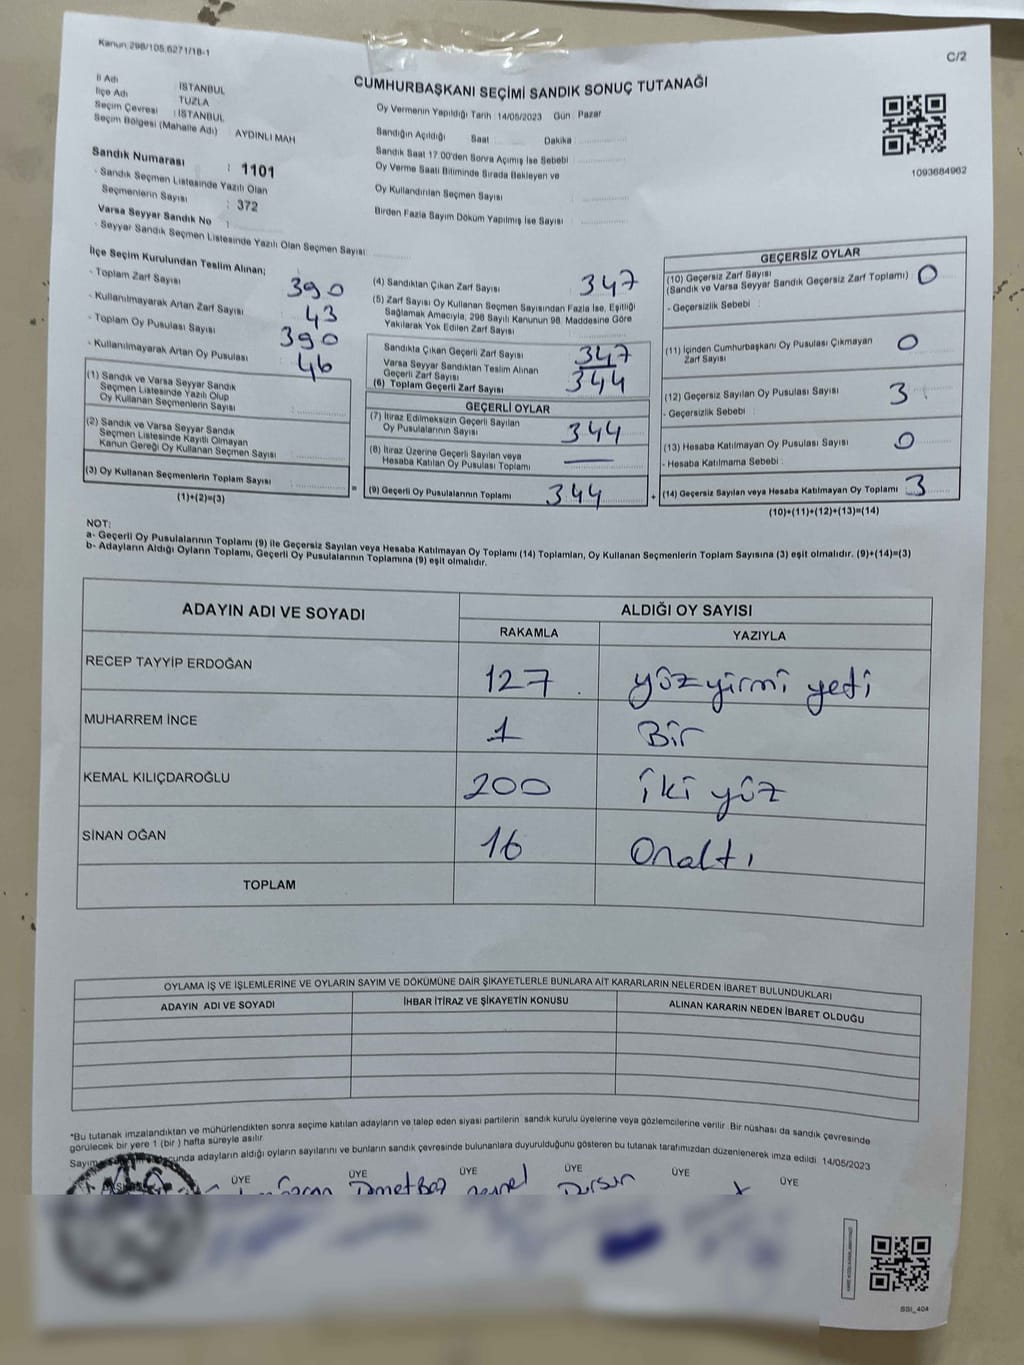 Kanun:298/105,6271/18-1
C/2
CUMHURBAŞKANI SEÇİMİ SANDIK SONUÇ TUTANAĞI
İl Adı : İSTANBUL
İlçe Adı : TUZLA
Seçim Çevresi : İSTANBUL
Seçim Bölgesi (Mahalle Adı) : AYDINLI MAH
Sandık Numarası : 1101
- Sandık Seçmen Listesinde Yazılı Olan
Seçmenlerin Sayısı : 372
Varsa Seyyar Sandık No :
- Seyyar Sandık Seçmen Listesinde Yazılı Olan Seçmen Sayısı:
Oy Vermenin Yapıldığı Tarih :14/05/2023 Gün : Pazar
Sandığın Açıldığı Saat Dakika :
Sandık Saat 17.00'den Sonra Açılmış İse Sebebi :
Oy Verme Saati Bitiminde Sırada Bekleyen ve
Oy Kullandırılan Seçmen Sayısı :
Birden Fazla Sayım Döküm Yapılmış İse Sayısı :
1093684962
İlçe Seçim Kurulundan Teslim Alınan;
- Toplam Zarf Sayısı 390
- Kullanılmayarak Artan Zarf Sayısı 43
- Toplam Oy Pusulası Sayısı 390
- Kullanılmayarak Artan Oy Pusulası 46
(1) Sandık ve Varsa Seyyar Sandık
Seçmen Listesinde Yazılı Olup
Oy Kullanan Seçmenlerin Sayısı :
(2) Sandık ve Varsa Seyyar Sandık
Seçmen Listesinde Kayıtlı Olmayan
Kanun Gereği Oy Kullanan Seçmen Sayısı :
(3) Oy Kullanan Seçmenlerin Toplam Sayısı :
(1)+(2)=(3)
(4) Sandıktan Çıkan Zarf Sayısı 347
(5) Zarf Sayısı Oy Kullanan Seçmen Sayısından Fazla İse, Eşitliği
Sağlamak Amacıyla, 298 Sayılı Kanunun 98. Maddesine Göre
Yakılarak Yok Edilen Zarf Sayısı
Sandıkta Çıkan Geçerli Zarf Sayısı 347
Varsa Seyyar Sandıktan Teslim Alınan
Geçerli Zarf Sayısı
(6) Toplam Geçerli Zarf Sayısı 344
GEÇERLİ OYLAR
(7) İtiraz Edilmeksizin Geçerli Sayılan
Oy Pusulalarının Sayısı 344
(8) İtiraz Üzerine Geçerli Sayılan veya
Hesaba Katılan Oy Pusulası Toplamı —
= (9) Geçerli Oy Pusulalarının Toplamı 344
GEÇERSİZ OYLAR
(10) Geçersiz Zarf Sayısı
(Sandık ve Varsa Seyyar Sandık Geçersiz Zarf Toplamı) 0
- Geçersizlik Sebebi :
(11) İçinden Cumhurbaşkanı Oy Pusulası Çıkmayan
Zarf Sayısı 0
(12) Geçersiz Sayılan Oy Pusulası Sayısı 3
- Geçersizlik Sebebi :
(13) Hesaba Katılmayan Oy Pusulası Sayısı 0
- Hesaba Katılmama Sebebi :
+ (14) Geçersiz Sayılan veya Hesaba Katılmayan Oy Toplamı 3
(10)+(11)+(12)+(13)=(14)
NOT:
a- Geçerli Oy Pusulalarının Toplamı (9) ile Geçersiz Sayılan veya Hesaba Katılmayan Oy Toplamı (14) Toplamları, Oy Kullanan Seçmenlerin Toplam Sayısına (3) eşit olmalıdır. (9)+(14)=(3)
b- Adayların Aldığı Oyların Toplamı, Geçerli Oy Pusulalarının Toplamına (9) eşit olmalıdır.
ADAYIN ADI VE SOYADI ALDIĞI OY SAYISI
RAKAMLA YAZIYLA
RECEP TAYYİP ERDOĞAN 127 yüzyirmi yedi
MUHARREM İNCE 1 Bir
KEMAL KILIÇDAROĞLU 200 iki yüz
SİNAN OĞAN 16 Onaltı
TOPLAM
OYLAMA İŞ VE İŞLEMLERİNE VE OYLARIN SAYIM VE DÖKÜMÜNE DAİR ŞİKAYETLERLE BUNLARA AİT KARARLARIN NELERDEN İBARET BULUNDUKLARI
ADAYIN ADI VE SOYADI İHBAR İTİRAZ VE ŞİKAYETİN KONUSU ALINAN KARARIN NEDEN İBARET OLDUĞU
*Bu tutanak imzalandıktan ve mühürlendikten sonra seçime katılan adayların ve talep eden siyasi partilerin sandık kurulu üyelerine veya gözlemcilerine verilir. Bir nüshası da sandık çevresinde
görülecek bir yere 1 (bir ) hafta süreyle asılır.
Sayım adayların aldığı oyların sayılarını ve bunların sandık çevresinde bulunanlara duyurulduğunu gösteren bu tutanak tarafımızdan düzenlenerek imza edildi. 14/05/2023
ÜYE ÜYE ÜYE ÜYE ÜYE ÜYE
Dursun
SSI_404